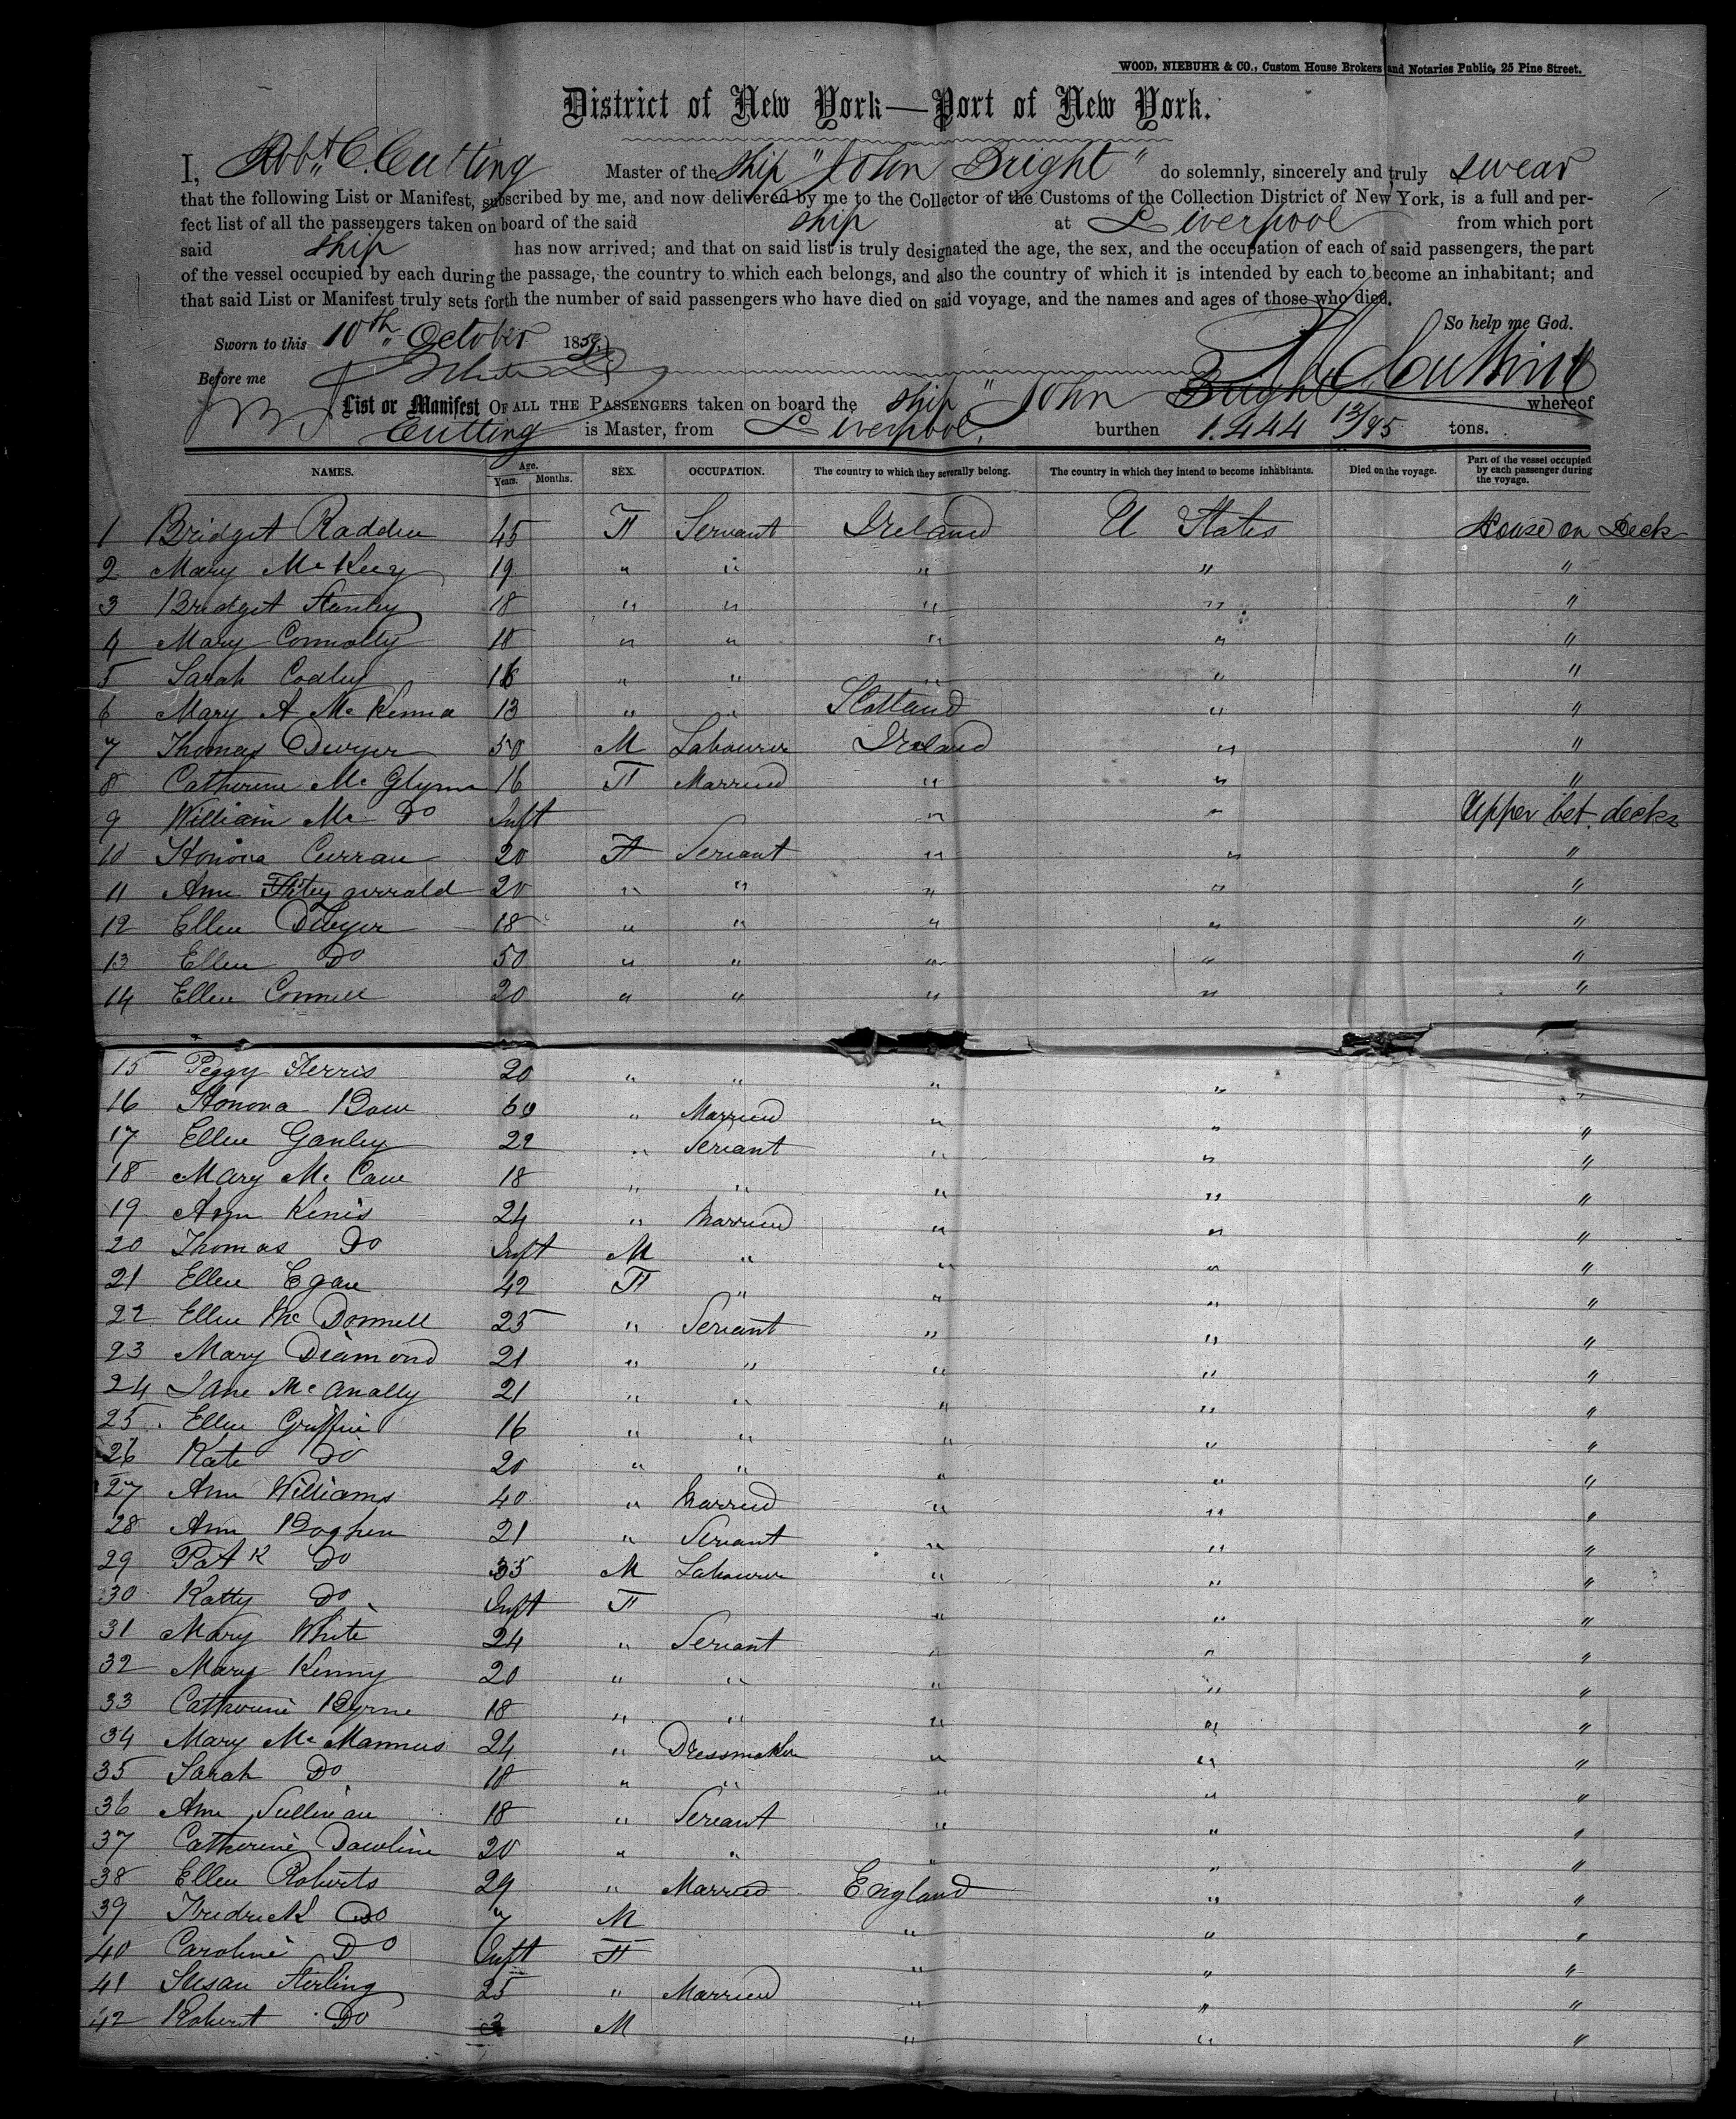 WOOD, NIEBUHR & CO., Custom House Brokers and Notaries Public, 25 Pine Street.
District of New York—Port of New York.
I, Robt. C. Cutting Master of the ship "John Bright" do solemnly, sincerely and truly swear
that the following List or Manifest, subscribed by me, and now delivered by me to the Collector of the Customs of the Collection District of New York, is a full and per-
fect list of all the passengers taken on board of the said ship at Liverpool from which port
said ship has now arrived; and that on said list is truly designated the age, the sex, and the occupation of each of said passengers, the part
of the vessel occupied by each during the passage, the country to which each belongs, and also the country of which it is intended by each to become an inhabitant; and
that said List or Manifest truly sets forth the number of said passengers who have died on said voyage, and the names and ages of those who died.
So help me God.
Sworn to this 10th October 1859
Before me
R C Cutting
List or Manifest OF ALL THE PASSENGERS taken on board the ship "John Bright" whereof
Cutting is Master, from Liverpool, burthen 1.444 13/95 tons.
NAMES. Age. Years. Months. SEX. OCCUPATION. The country to which they severally belong. The country in which they intend to become inhabitants. Died on the voyage. Part of the vessel occupied by each passenger during the voyage.
1 Bridget Radden 45 F Servant Ireland U States House on Deck
2 Mary McKey 19 " " " " "
3 Bridget Stanley 18 " " " " "
4 Mary Connolly 18 " " " " "
5 Sarah Codley 16 " " " " "
6 Mary A McKenna 13 " " Scotland " "
7 Thomas Dwyer 50 M Labourer Ireland " "
8 Catherine McGlynn 16 F Married " " "
9 William Mc Do Inft " " Upper bet. decks
10 Honora Curran 20 F Servant " " "
11 Ann Fitzgerrald 20 " " " " "
12 Ellen Dwyer 18 " " " " "
13 Ellen Do 50 " " " " "
14 Ellen Connell 20 " " " " "
15 Peggy Ferris 20 " " " " "
16 Honora 60 " Married " " "
17 Ellen Ganley 22 " Servant " " "
18 Mary McCan 18 " " " " "
19 Ann Kenis 24 " Married " " "
20 Thomas Do Inft M " " " "
21 Ellen Egan 42 F " " " "
22 Ellen McDonnell 25 " Servant " " "
23 Mary Diamond 21 " " " " "
24 Jane McAnally 21 " " " " "
25 Ellen Griffin 16 " " " " "
26 Kate Do 20 " " " " "
27 Ann Williams 40 " Married " " "
28 Ann Boghen 21 " Servant " " "
29 Patk Do 35 M Labourer " " "
30 Katty Do Inft F " " "
31 Mary White 24 " Servant " " "
32 Mary Kenny 20 " " " " "
33 Catherine Byrne 18 " " " " "
34 Mary McMannus 24 " Dressmaker " " "
35 Sarah Do 18 " " " " "
36 Ann Sullivan 18 " Servant " " "
37 Catherine Dowline 20 " " " " "
38 Ellen Roberts 29 " Married England " "
39 Fredrick Do 7 M " " "
40 Caroline Do Inft F " " "
41 Susan Sterling 25 " Married " " "
42 Robert Do 3 M " " "